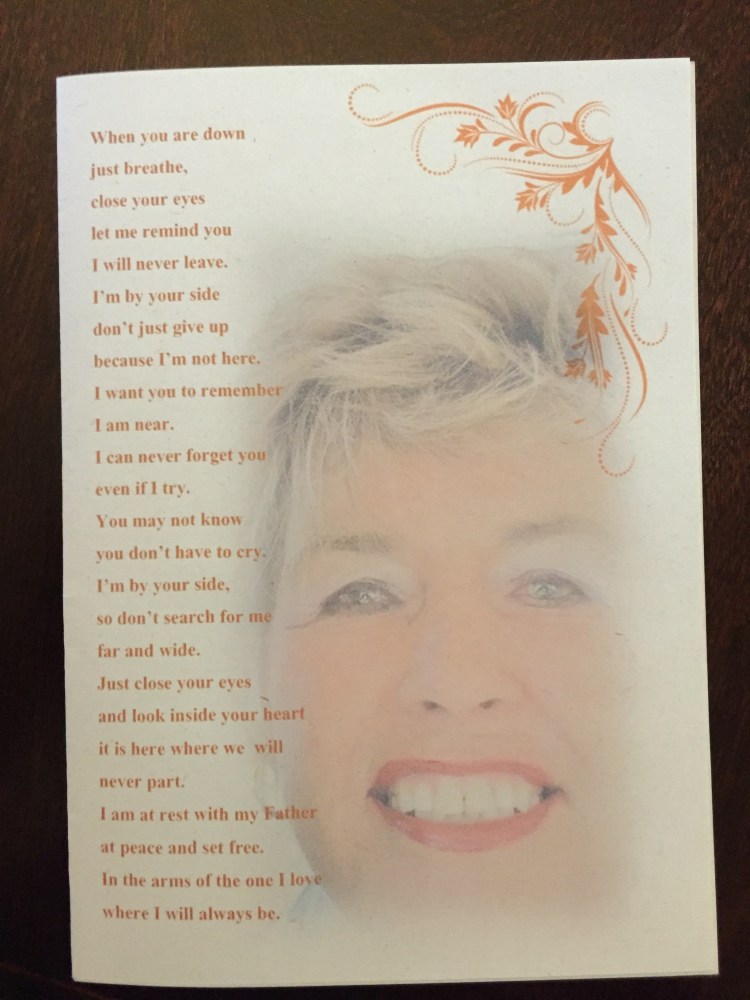 When you are down
just breathe,
close your eyes
let me remind you
I will never leave.
I'm by your side
don't just give up
because I'm not here.
I want you to remember
I am near.
I can never forget you
even if I try.
You may not know
you don't have to cry.
I'm by your side,
so don't search for me
far and wide.
Just close your eyes
and look inside your heart
it is here where we will
never part.
I am at rest with my Father
at peace and set free.
In the arms of the one I love
where I will always be.